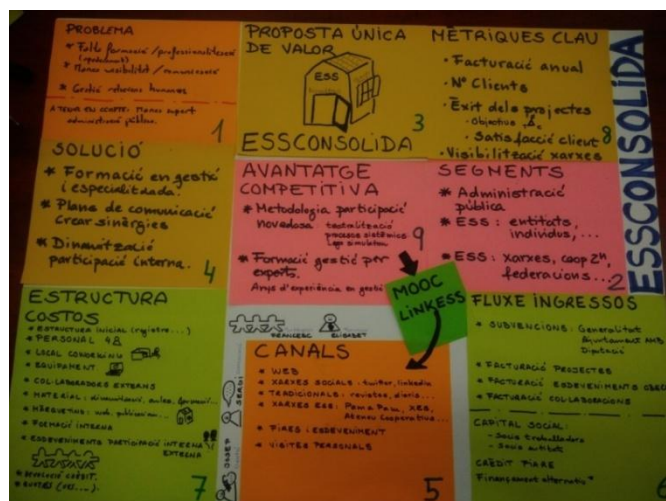 PROBLEMA
* Falta formació / professionalització
* Manca visibilitat / comunicació
* Gestió relacions humanes
A TENIR EN COMPTE: Manca suport
administració pública.
1
PROPOSTA ÚNICA
DE VALOR
ESS
ESSCONSOLIDA
3
MÈTRIQUES CLAU
· Facturació anual
· Nº Clients
· Èxit dels projectes
- Objectius
- Satisfacció client
· Visibilització xarxes
8
ESSCONSOLIDA
SOLUCIÓ
* Formació en gestió
i especialitzada.
* Plans de comunicació
Crear sinèrgies
* Dinamització
participació interna.
4
AVANTATGE
COMPETITIVA
* Metodologia participació
novedosa.
teatralització
processos sistèmics
* Formació gestió per
experts.
Anys d'experiència en gestió
9
SEGMENTS
* Administració
pública
* ESS: entitats,
individus, ...
* ESS: xarxes, coop 2n,
federacions...
2
MOOC
LINKESS
ESTRUCTURA
COSTOS
* ESTRUCTURA INICIAL (registre...)
* PERSONAL
* LOCAL COWORKING
* EQUIPAMENT
* COL·LABORADORS EXTERNS
* MATERIAL: dinamització, aules,
* MÀRQUETING: web, publicacions...
* FORMACIÓ INTERNA
* ESDEVENIMENTS PARTICIPACIÓ INTERNA/
EXTERNA
* DEVOLUCIÓ CRÈDIT.
7
FRANCESC
ELISABET
SERGI
JOSEP
CANALS
* WEB
* XARXES SOCIALS: twitter, linkedin
* TRADICIONALS: revistes, diaris...
* XARXES ESS: Pam a Pam, XES,
Ateneu Cooperatiu...
* FIRES / ESDEVENIMENT
* VISITES PERSONALS
5
FLUXE INGRESSOS
* SUBVENCIONS: Generalitat
Ajuntament AMB
Diputació
* FACTURACIÓ PROJECTES
* FACTURACIÓ ESDEVENIMENTS
* FACTURACIÓ COL·LABORADORS
CAPITAL SOCIAL:
- Socis treballadors
- Socis
CRÈDIT
Finançament alternatiu
6